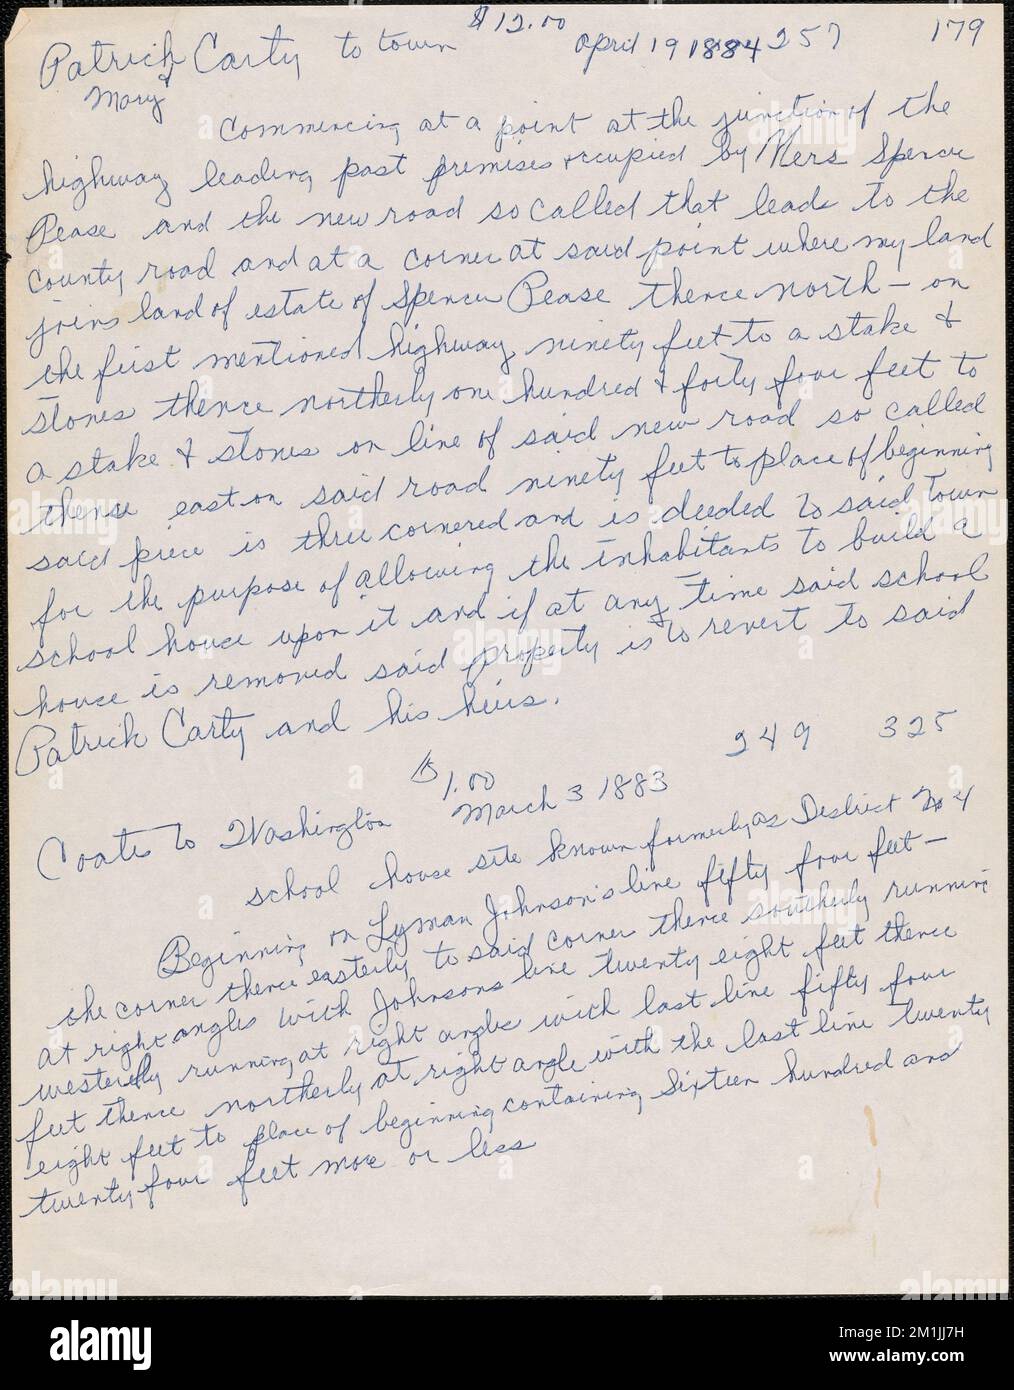 $12.00
Patrick Carty to town April 19 1884 257 179
& Mary
Commencing at a point at the junction of the
highway leading past premises occupied by Mers Spencer
Pease and the new road so called that leads to the
county road and at a corner at said point where my land
joins land of estate of Spencer Pease thence north - on
the first mentioned highway ninety feet to a stake &
stones thence northerly one hundred & forty four feet to
a stake & stones on line of said new road so called
thense east on said road ninety feet to place of beginning
said piece is three cornered and is deeded to said town
for the purpose of allowing the inhabitants to build a
school house upon it and if at any time said school
house is removed said property is to revert to said
Patrick Carty and his heirs.
$1.00 249 325
Coats to Washington March 3 1883
school house site known formerly as District No 4
Beginning on Lyman Johnson's line fifty four feet -
the corner thence easterly to said corner thence southerly running
at right angles with Johnsons line twenty eight feet thence
westerly running at right angles with last line fifty four
feet thence northerly at right angle with the last line twenty
eight feet to place of beginning containing Sixteen hundred and
twenty four feet more or less
alamy
Image ID: 2M1JJ7H
www.alamy.com